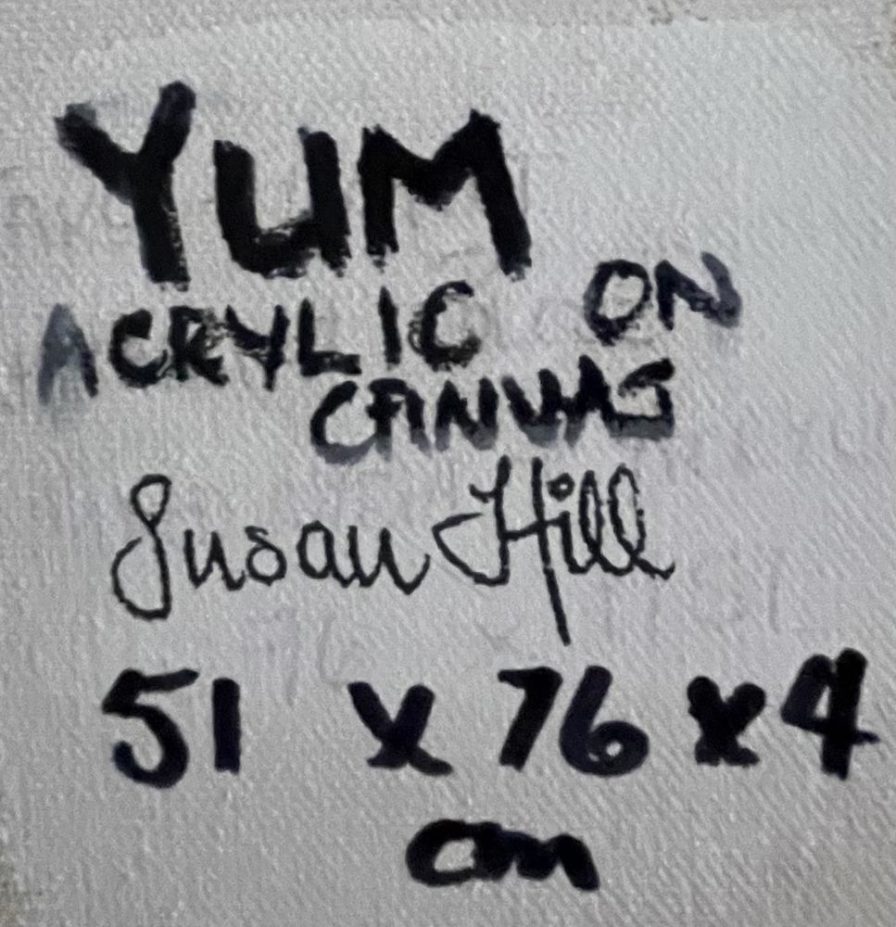 YUM
ACRYLIC ON
CANVAS
Susan Hill
51 x 76 x 4
cm